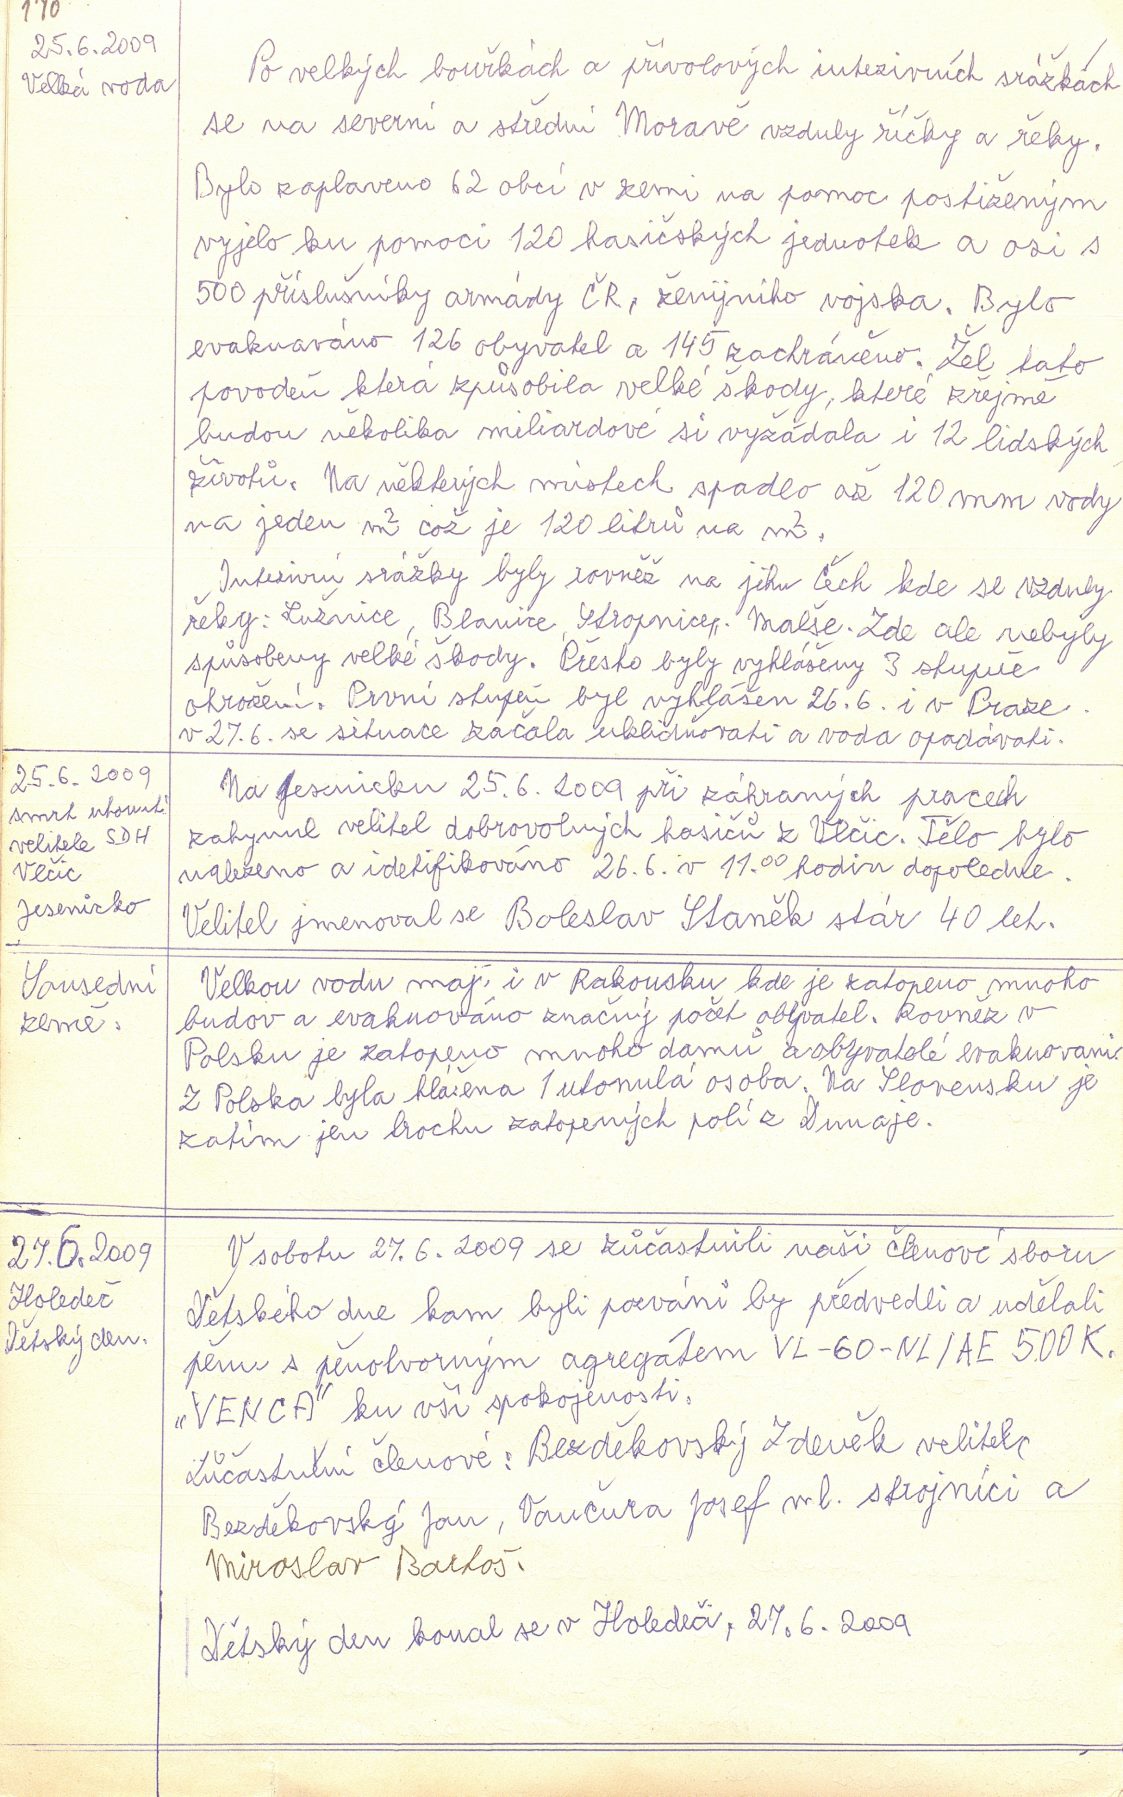 170
25.6.2009
Velká voda
Po velkých bouřkách a přívolových intezivních srážkách
se na severní a střední Moravě vzduly říčky a řeky.
Bylo zaplaveno 62 obcí v zemi na pomoc postiženým
vyjelo ku pomoci 120 hasičských jednotek a asi s
500 příslušníky armády ČR, ženijního vojska. Bylo
evakuaváno 126 obyvatel a 145 zachráněno. Žel tato
povodeň která způsobila velké škody, které zřejmě
budou několika miliardové si vyžádala i 12 lidských
životů. Na některých místech spadlo až 120 mm vody
na jeden m² což je 120 litrů na m².
Intezivní srážky byly rovněž na jihu Čech kde se vzduly
řeky: Lužnice, Blanice, Stropnice,. Malše. Zde ale nebyly
spůsobeny velké škody. Přesto byly vyhlášeny 3 stupně
ohrožení. První stupeň byl vyhlášen 26.6. i v Praze.
v 27.6. se situace začala uklidňovati a voda opadávati.
25.6. 2009
smrt utonutí
velitele SDH
Vlčic
Jesenicko
Na Jesenicku 25.6. 2009 při záhraných pracech
zahynul velitel dobrovolných hasičů z Vlčic. Tělo bylo
nalezeno a idetifikováno 26.6. v 11.00 hodin dopoledne.
Velitel jmenoval se Boleslav Staněk stár 40 let.
Sousední
země.
Velkou vodu mají i v Rakousku kde je zatopeno mnoho
budov a evakuováno značný počet obyvatel. Rovněž v
Polsku je zatopeno mnoho damů a obyvatelé evakuovani.
Z Polska byla hlášena 1 utonulá osoba. Na Slovensku je
zatím jen trochu zatopených polí z Dunaje.
27.6.2009
Holedeč
Dětský den.
V sobotu 27.6. 2009 se zůčastnili naši členové sboru
Dětského dne kam byli pozváni by předvedli a udělali
pěnu s pěnotvorným agregátem VL-60-NL/AE 500K.
„VENCA" ku vší spokojenosti.
Zůčastnění členové: Bezděkovský Zdeněk velitel,
Bezděkovský Jan, Vančura Josef ml. strojníci a
Miroslav Bartoš.
Dětský den konal se v Holedeči, 27.6. 2009